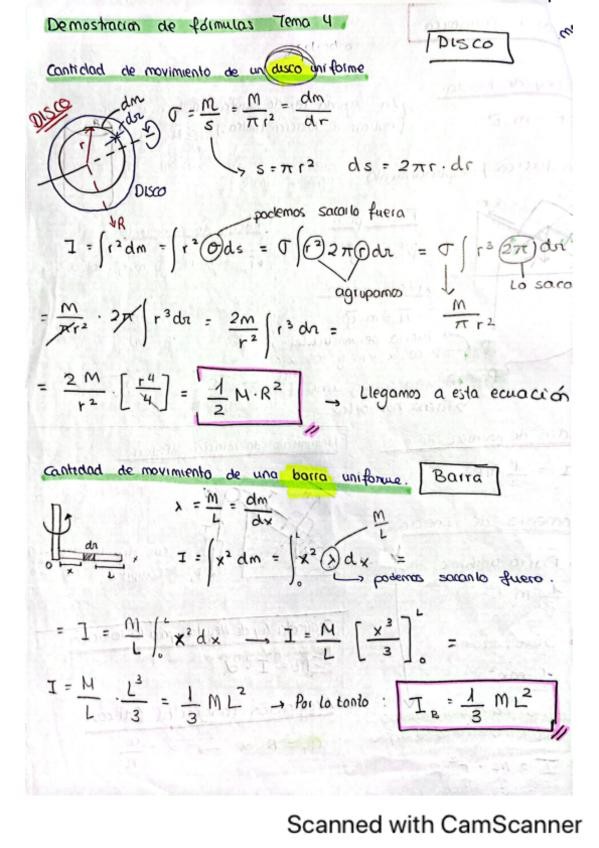 Demostracion de fórmulas Tema 4
DISCO
Cantidad de movimiento de un disco uniforme
DISCO
dm
dr
r
DISCO
R
σ = M/S = M/πr² = dm/dr
s = πr²   ds = 2πr · dr
podemos sacarlo fuera
I = ∫r²dm = ∫r² σ ds = σ∫r² 2π r dr = σ∫r³ 2π dr
agrupamos
Lo saco
M/πr²
= M/πr² · 2π∫r³dr = 2M/r² ∫r³ dr =
= 2M/r² · [r⁴/4] = 1/2 M·R² → Llegamos a esta ecuación
Cantidad de movimiento de una barra uniforme.
Barra
λ = M/L = dm/dx
M/L
dx
0 x L x
I = ∫x² dm = ∫₀ᴸ x² λ dx =
podemos sacarlo fuera.
= I = M/L ∫₀ᴸ x² dx → I = M/L [x³/3]₀ᴸ =
I = M/L · L³/3 = 1/3 ML² → Por lo tanto : I_B = 1/3 ML²
Scanned with CamScanner